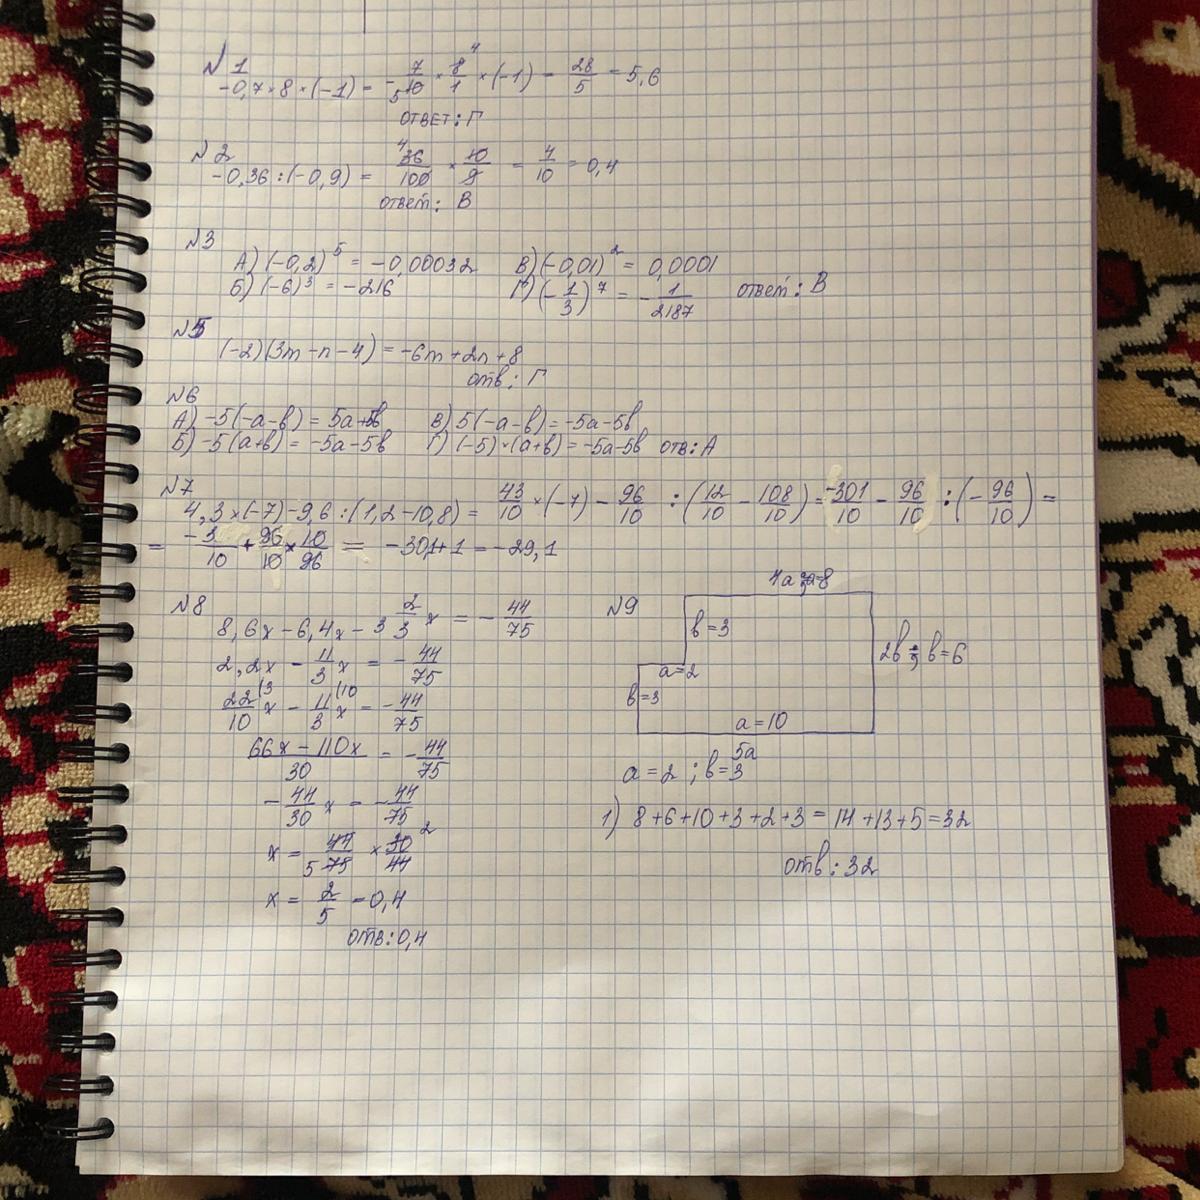 №1
-0,7×8×(-1) = -7/10 × 8/1 × (-1) = 28/5 = 5,6
ответ: Г
№2
-0,36:(-0,9) = 36/100 × 10/9 = 4/10 = 0,4
ответ: В
№3
А) (-0,2)^5 = -0,00032 В) (-0,01)^2 = 0,0001
Б) (-6)^3 = -216 Г) (-1/3)^7 = -1/2187 ответ: В
№5
(-2)(3m-n-4) = -6m+2n+8
отв: Г
№6
А) -5(-a-b) = 5a+5b В) 5(-a-b) = -5a-5b
Б) -5(a+b) = -5a-5b Г) (-5)×(a+b) = -5a-5b отв: А
№7
4,3×(-7)-9,6:(1,2-10,8) = 43/10 × (-7) - 96/10 : (12/10 - 108/10) = -301/10 - 96/10 : (-96/10) =
= -3/10 + 96/10 × 10/96 = -30,1+1 = -29,1
№8
8,6x-6,4x-3 2/3 x = -44/75
2,2x - 11/3 x = -44/75
22/10 (3 x - 11/3 (10 x = -44/75
66x-110x/30 = -44/75
-44/30 x = -44/75
x = 5 44/75 × 30/44 2
x = 2/5 = 0,4
отв: 0,4
№9
4a = 8
b=3
2b b=6
a=2
b=3
a=10
5a
a=2 ; b=3
1) 8+6+10+3+2+3 = 14+13+5=32
отв: 32